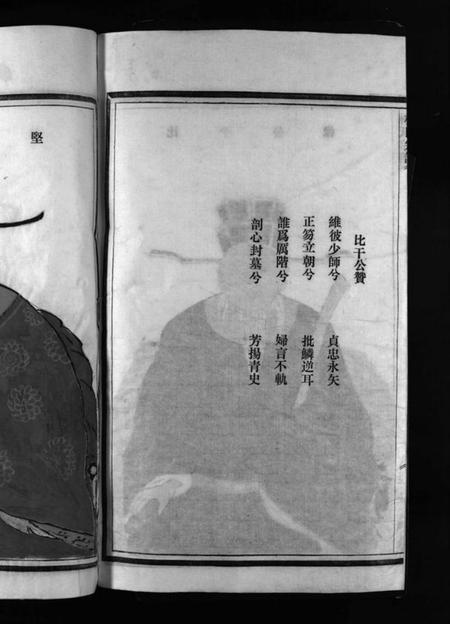 比干公贊
維彼少師兮 貞忠永矢
正笏立朝兮 批鱗逆耳
誰爲厲階兮 婦言不軌
剖心封墓兮 芳揚青史
堅